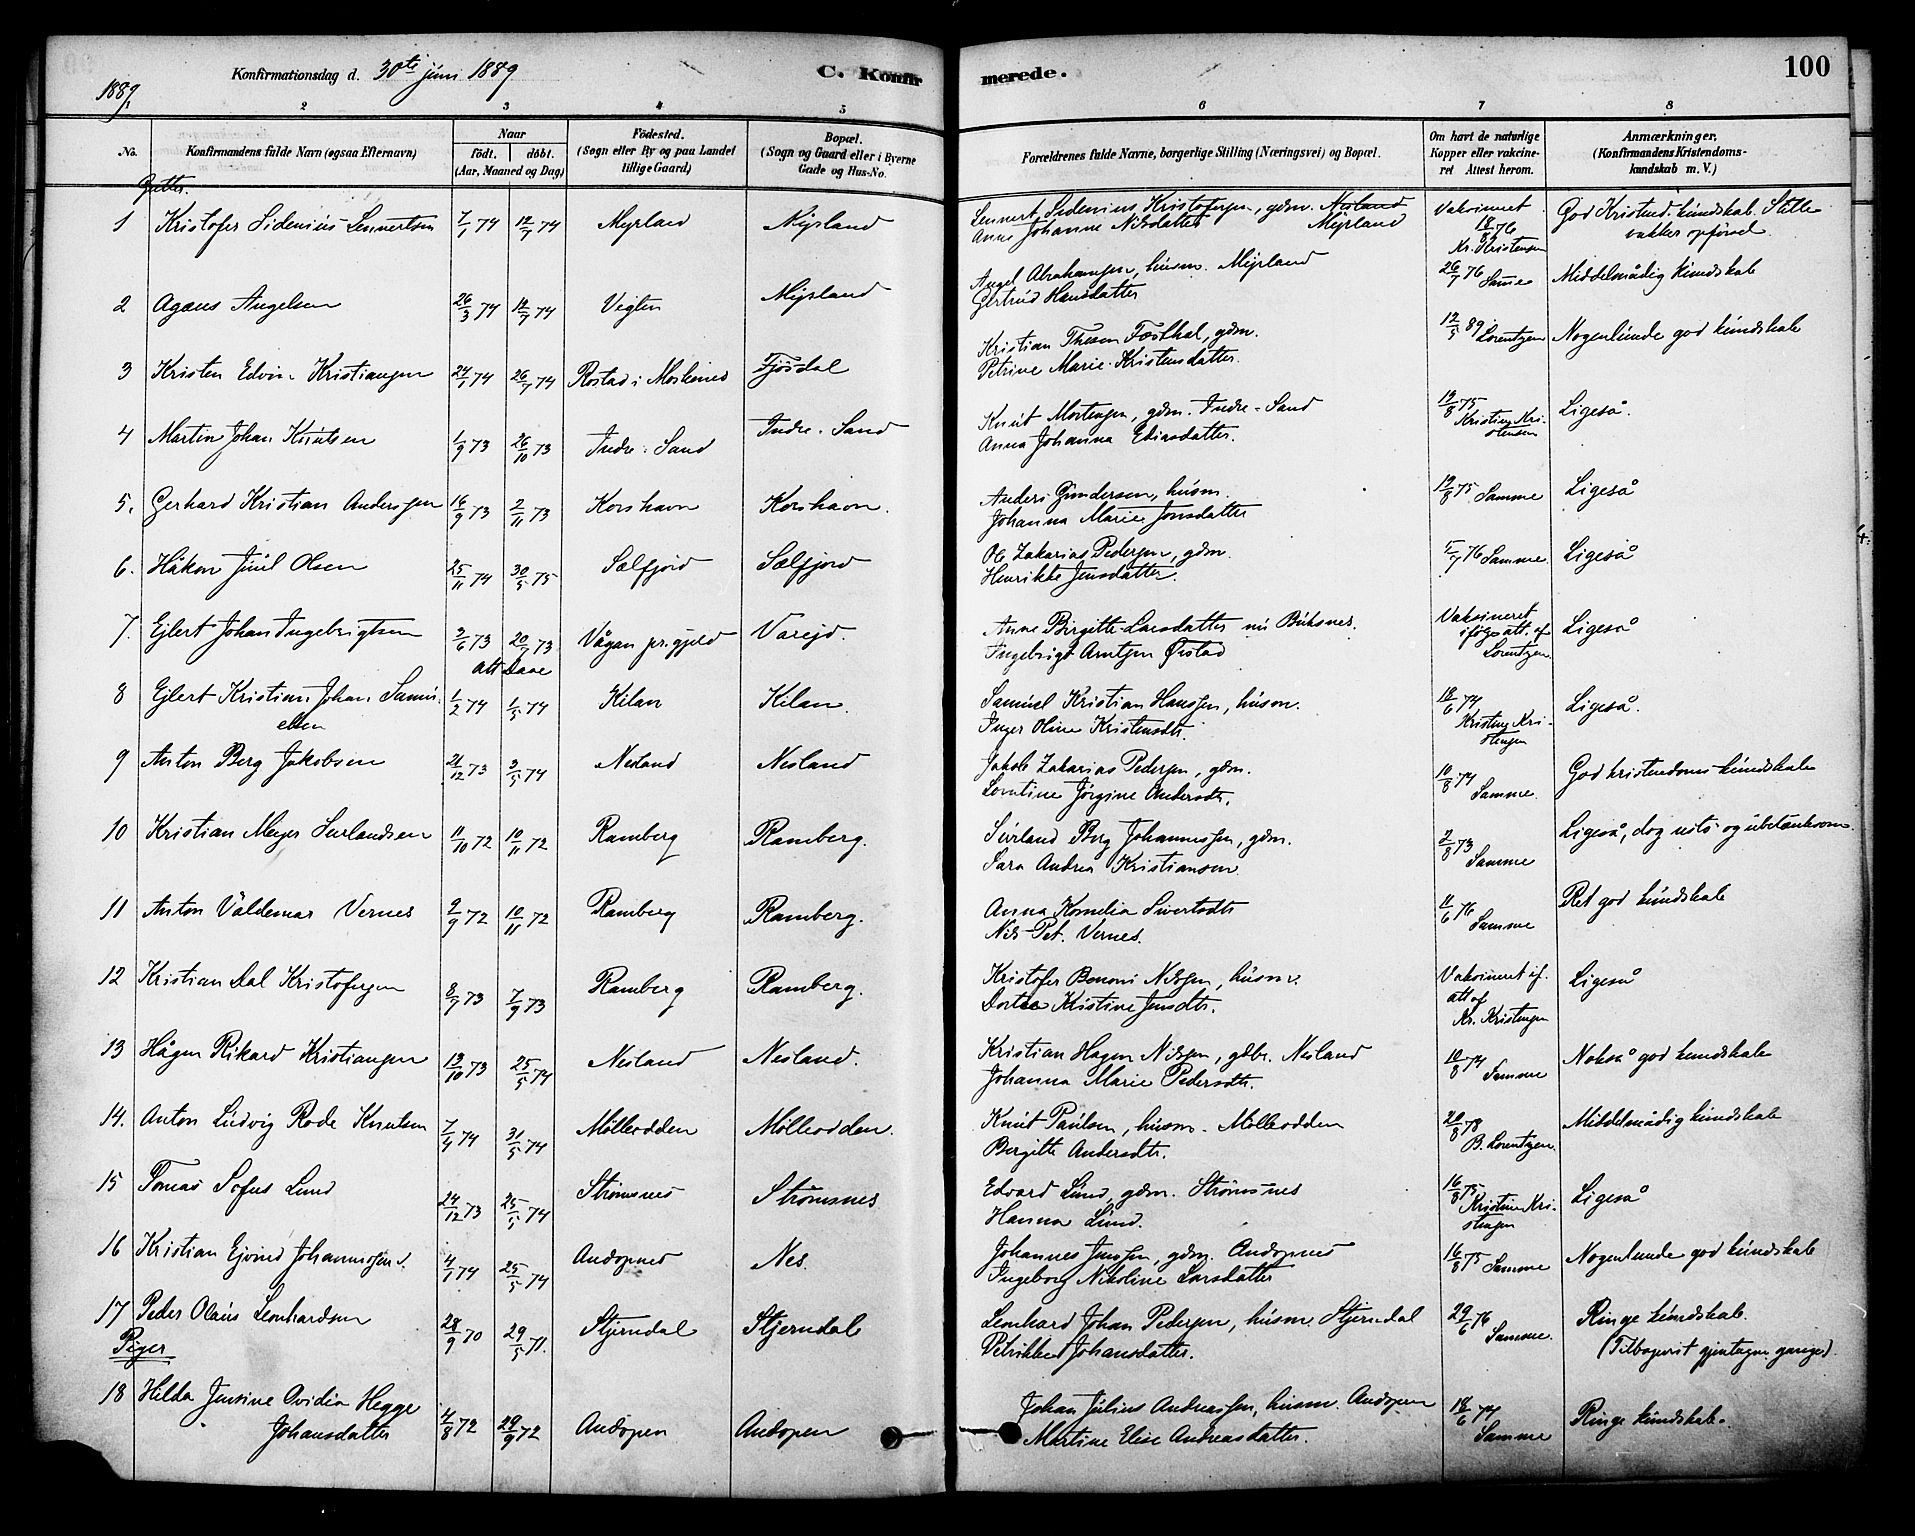 Konfirmationsdag d. 30te juni 1889
C. Konfirmerede.
100
1889.
2 3 4 5 6 7 8
No.
Konfirmandens fulde Navn (ogsaa Efternavn)
Naar
födt. döbt.
(Aar, Maaned og Dag)
Födested.
(Sogn eller By og paa Landet
tillige Gaard)
Bopæl.
(Sogn og Gaard eller i Byerne
Gade og Hus-No.
Forældrenes fulde Navne, borgerlige Stilling (Næringsvei) og Bopæl.
Om havt de naturlige
Kopper eller vakcine-
ret Attest herom.
Anmærkninger.
(Konfirmandens Kristendoms-
kundskab m. V.)
Gutter.
1 Kristofer Sidenius Lennertsen 7/1 74 12/7 74 Myrland Myrland Lennert Sidenius Kristofersen, gdm. Nesland Vaksineret God Kristend. kundskab. Stille
Anne Johanne Nilsdatter Myrland 18/8 76 vakker opførsel.
Kr. Kristensen
2 Agæus Angelsen 26/3 74 12/7 74 Vegten Myrland Angel Abrahamsen, husm. Myrland 26/7 76 Samme Middelmådig kundskab
Gertrud Hansdatter
3 Kristen Edvin Kristiansen 24/1 74 26/7 74 Rostad i Moskenes Fjøsdal Kristian Thesen, gdm. 12/5 89 Lorentzen Nogenlunde god kundskab
Petrine Marie Kristensdatter.
4 Martin Johan Knutsen 1/9 73 26/10 73 Indre-Sand Indre-Sand Knut Mortensen, gdm. Indre-Sand 19/8 75 Ligeså.
Anna Johanna Eliasdatter. Kristine Kri-
stensen
5. Gerhard Kristian Anderssen 16/9 73 2/11 73 Korshavn Korshavn. Anders Gundersen, husm. 19/8 75 Samme Ligeså
Johanna Marie Jonsdatter
6. Håkon Juul Olsen 25/11 74 30/5 75 Sælfjord Sælfjord Ole Zakarias Pedersen, gdm. 5/7 76 Samme Ligeså
Henrikke Jensdatter.
7. Ejlert Johan Ingebrigtsen 3/6 73 20/7 73 Vågan pr.gjeld Vareid. Anne Birgitte Larsdatter nu Buksnes. Vaksineret Ligeså
att. Daae Ingebrigt Arntsen Ørstad ifølg att. af
Lorentzen.
8 Ejlert Kristian Johan Samu- 1/2 74 1/5 74 Kilan Kilan. Samuel Kristian Hanssen, husm. 18/6 74 Ligeså.
elsen Inger Oline Kristensdtr. Kristine Kri-
stensen
9 Anton Berg Jakobsen 21/12 73 3/5 74 Nesland Nesland Jakob Zakarias Pedersen, gdm. 10/8 74 God kristendoms kundskab
Lorntine Jørgine Andersdtr. Samme.
10 Kristian Meyer Surlandsen 11/10 72 10/11 72 Ramberg Ramberg. Surland Berg Johannessen, gdm. 2/8 73 Ligeså, dog uits og ubetænksom.
Sara Andrea Kristiansen Samme
11 Anton Valdemar Vernes 9/9 72 10/11 72 Ramberg Ramberg. Anna Kornelia Sivertsdtr 11/6 76 Ret god kundskab
Nils Pet. Vernes. Samme
12 Kristian Dal Kristofersen 8/7 73 7/9 73 Ramberg Ramberg. Kristofer Benoni Nilssen, husm. Vaksineret if. Ligeså
Dortea Kristine Jensdtr. att af
Kr. Kristensen
13 Hågen Rikard Kristiansen 13/10 73 25/5 74 Nesland Nesland. Kristian Hagen Nilssen, gdbr. Nesland 10/8 74 Samme Nokså god kundskab
Johanna Marie Pedersdtr.
14. Anton Ludvig Rode Knutsen 7/4 74 31/5 74 Mølleodden Mølleodden. Knut Paulsen, husm. Mølleodden 20/8 78 Middelmådig kundskab
Bergitte Andersdtr. B. Lorentzen.
15 Tomas Sofus Lund 24/12 73 25/5 74 Strømsnes Strømsnes Edvard Lund, gdm. Strømsnes 16/8 75 Ligeså
Hanna Lund. Kristine Kri-
stensen
16 Kristian Ejvind Johannessen. 4/1 74 25/5 74 Andopnes Nes. Johannes Jenssen, gdm. Andopnes 16/8 75 Samme Nogenlunde god kundskab
Ingeborg Nikoline Larsdatter
17 Peder Olaus Leonhardsen 28/9 70 29/5 71. Stjerndal Stjerndal Leonhard Johan Pedersen, husm. Stjerndal 29/6 76 Ringe kundskab.
Petrikke Johansdatter. Samme. (Tilbagevist gjentagne gange).
Piger
18 Hilda Jensine Ovidia Hegge 4/8 72 29/9 72 Andopen Andopen Johan Julius Andreassen, husm. Andopen 18/6 74 Ringe kundskab.
Johansdatter Martine Elise Andreasdatter. Samme